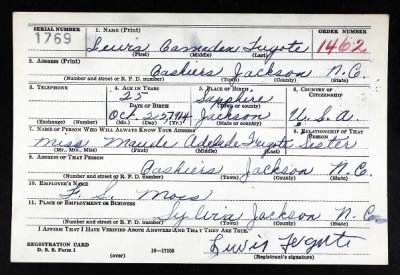 SERIAL NUMBER 1. NAME (Print) ORDER NUMBER
1769 Lewis 1462
(First) (Middle) (Last)
2. ADDRESS (Print)
Cashiers Jackson N.C.
(Number and street or R. F. D. number) (Town) (County) (State)
3. TELEPHONE 4. AGE IN YEARS 5. PLACE OF BIRTH 6. COUNTRY OF CITIZENSHIP
25 Sapphire
DATE OF BIRTH (Town or county)
Oct. 25 1914 Jackson U.S.A.
(Exchange) (Number) (Mo.) (Day) (Yr.) (State or country)
7. NAME OF PERSON WHO WILL ALWAYS KNOW YOUR ADDRESS 8. RELATIONSHIP OF THAT PERSON
Miss Maude Adelaide Sister
(Mr., Mrs., Miss) (First) (Middle) (Last)
9. ADDRESS OF THAT PERSON
Cashiers Jackson N.C.
(Number and street or R. F. D. number) (Town) (County) (State)
10. EMPLOYER'S NAME
F. S. Moss
11. PLACE OF EMPLOYMENT OR BUSINESS
Sylvia Jackson N.C.
(Number and street or R. F. D. number) (Town) (County) (State)
I AFFIRM THAT I HAVE VERIFIED ABOVE ANSWERS AND THAT THEY ARE TRUE.
REGISTRATION CARD
D. S. S. Form 1 16-17105 Lewis
(over) (Registrant's signature)